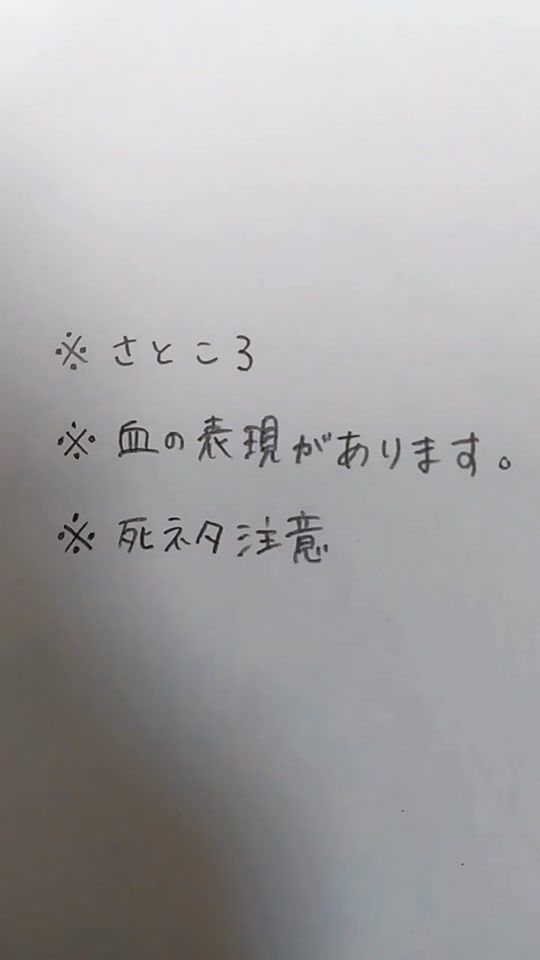 ※ さところ
※ 血の表現があります。
※ 死ネタ注意